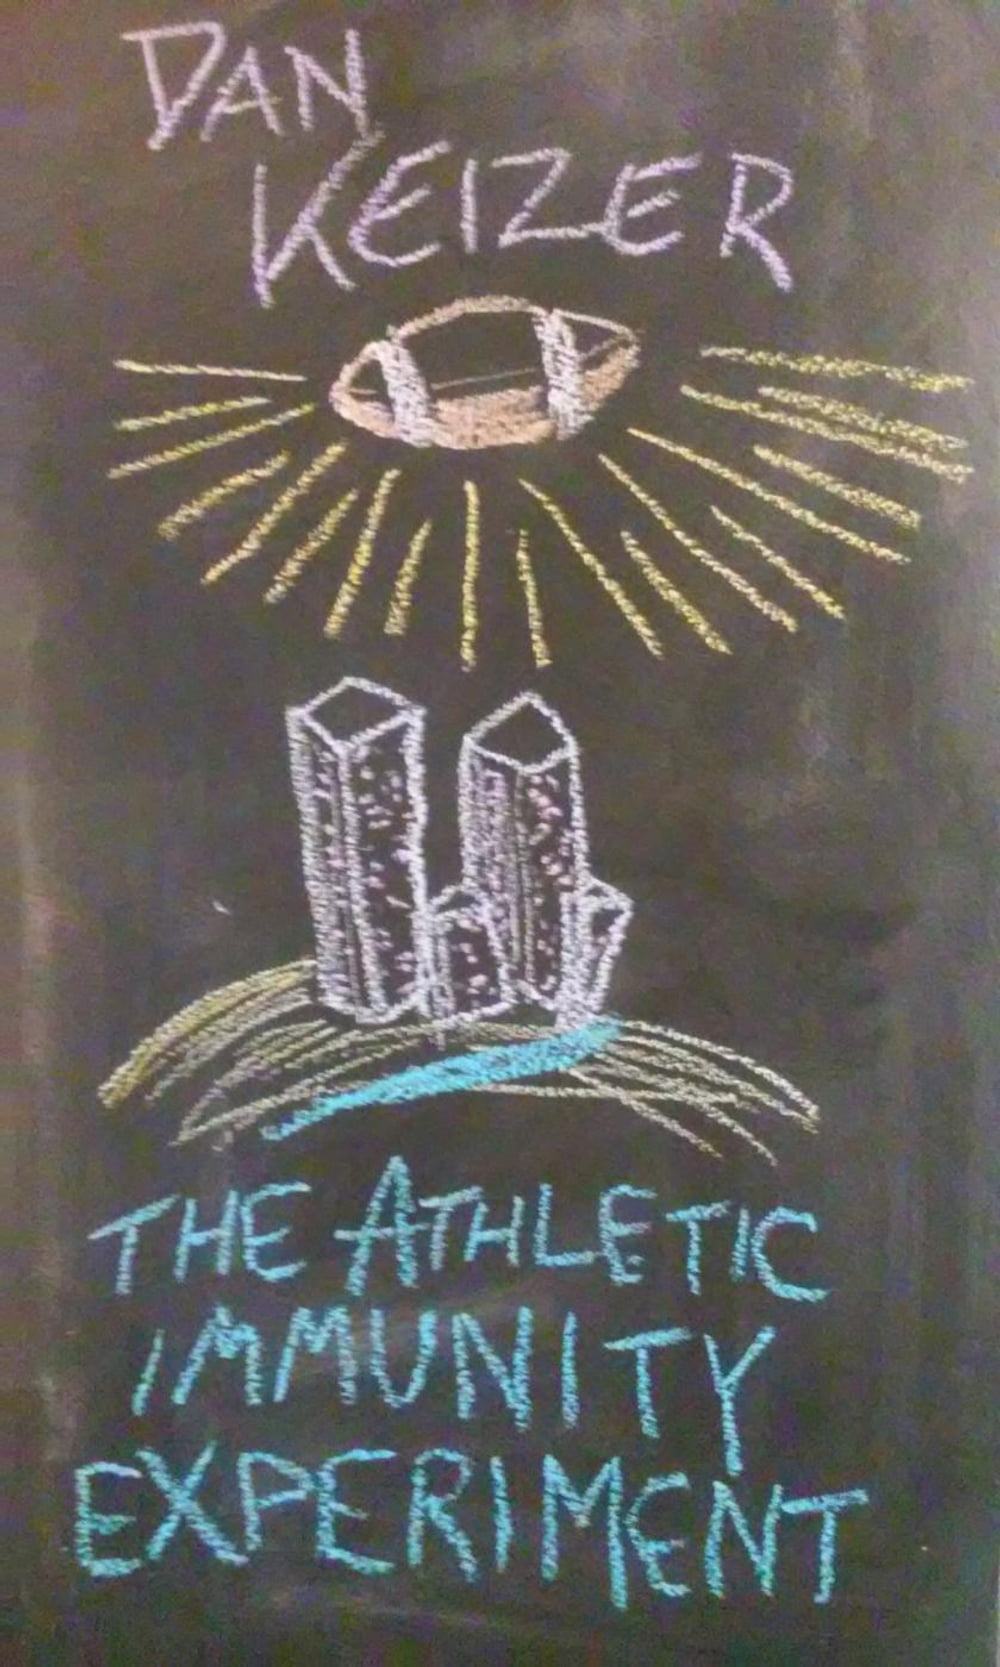 DAN
KEIZER
THE ATHLETIC
IMMUNITY
EXPERIMENT